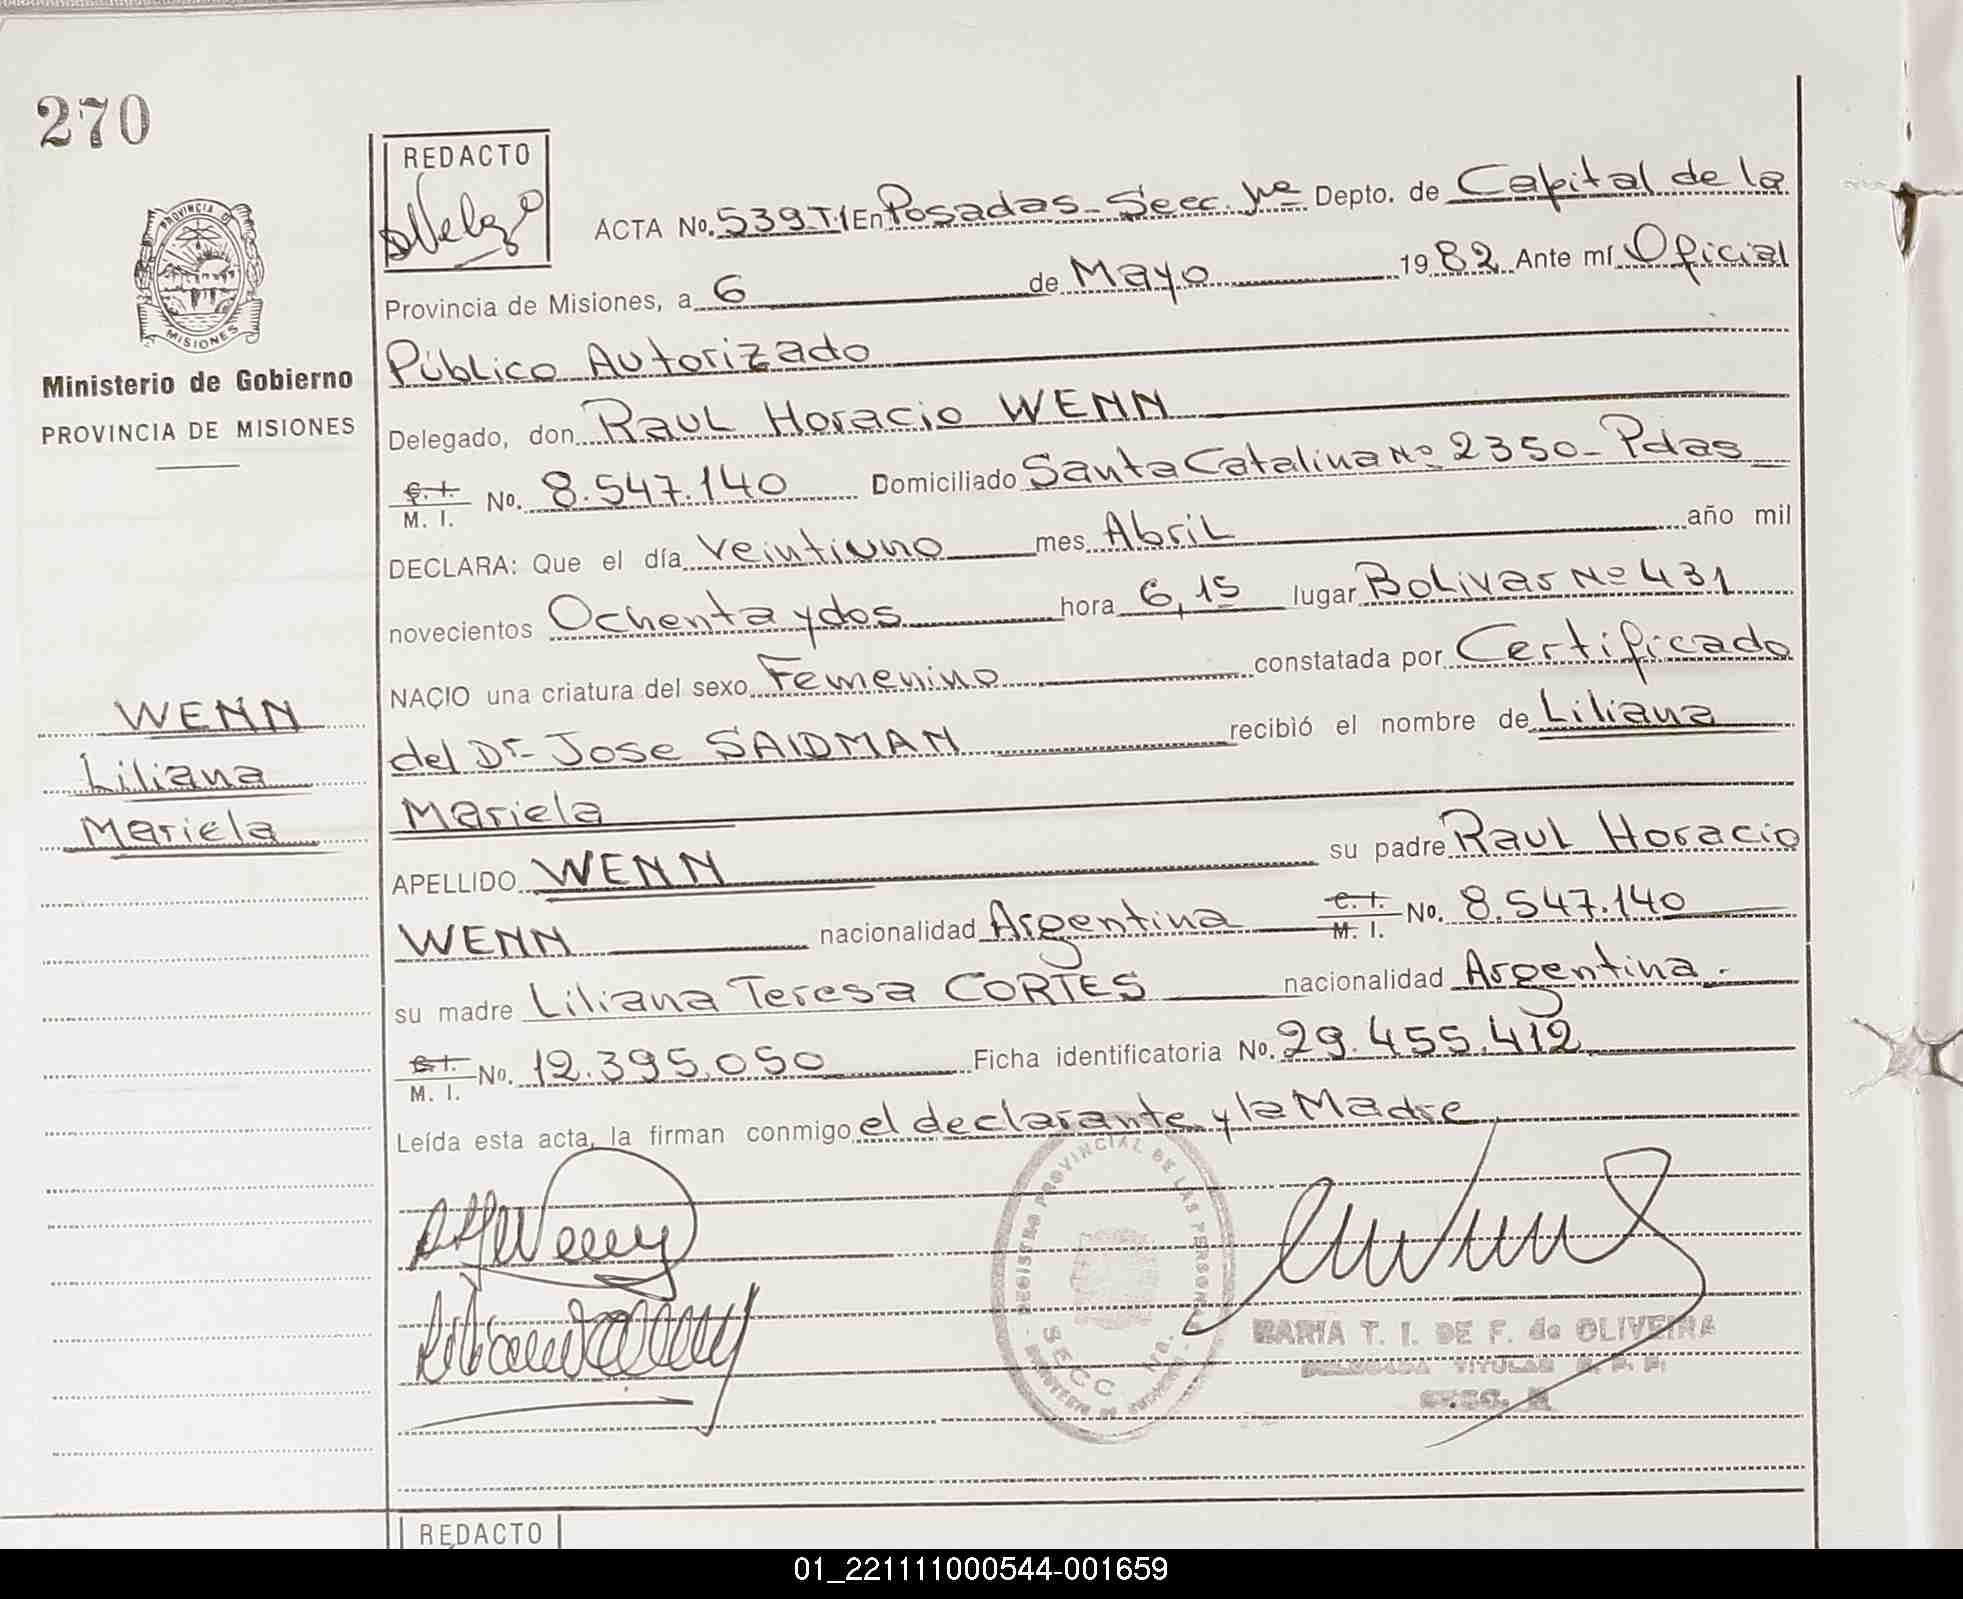 270
REDACTO
PROVINCIA D
MISIONES
Ministerio de Gobierno
PROVINCIA DE MISIONES
ACTA No. 539 T.1 En Posadas - Secc. 1ra Depto. de Capital de la
Provincia de Misiones, a 6 de Mayo 1982 Ante mí Oficial
Público Autorizado
Delegado, don Raul Horacio WENN
C.I. M. I. No. 8.547.140 Domiciliado Santa Catalina Nº 2350 - Pdas
DECLARA: Que el día veintiuno mes Abril año mil
novecientos Ochenta y dos hora 6,15 lugar Bolivar Nº 431
NACIO una criatura del sexo Femenino constatada por Certificado
del Dr. Jose SAIDMAN recibió el nombre de Liliana
Mariela
APELLIDO WENN su padre Raul Horacio
WENN nacionalidad Argentina C.I. M. I. No. 8.547.140
su madre Liliana Teresa CORTES nacionalidad Argentina.-
C.I. M. I. No. 12.395.050 Ficha identificatoria No. 29.455.412
Leída esta acta, la firman conmigo el declarante y la Madre
WENN
Liliana
Mariela
REGISTRO PROVINCIAL DE LAS PERSONAS
SECC. 1ra.
MARIA T. I. DE F. de OLIVEIRA
DELEGADA TITULAR R. P. P.
SECC.
REDACTO
01_221111000544-001659